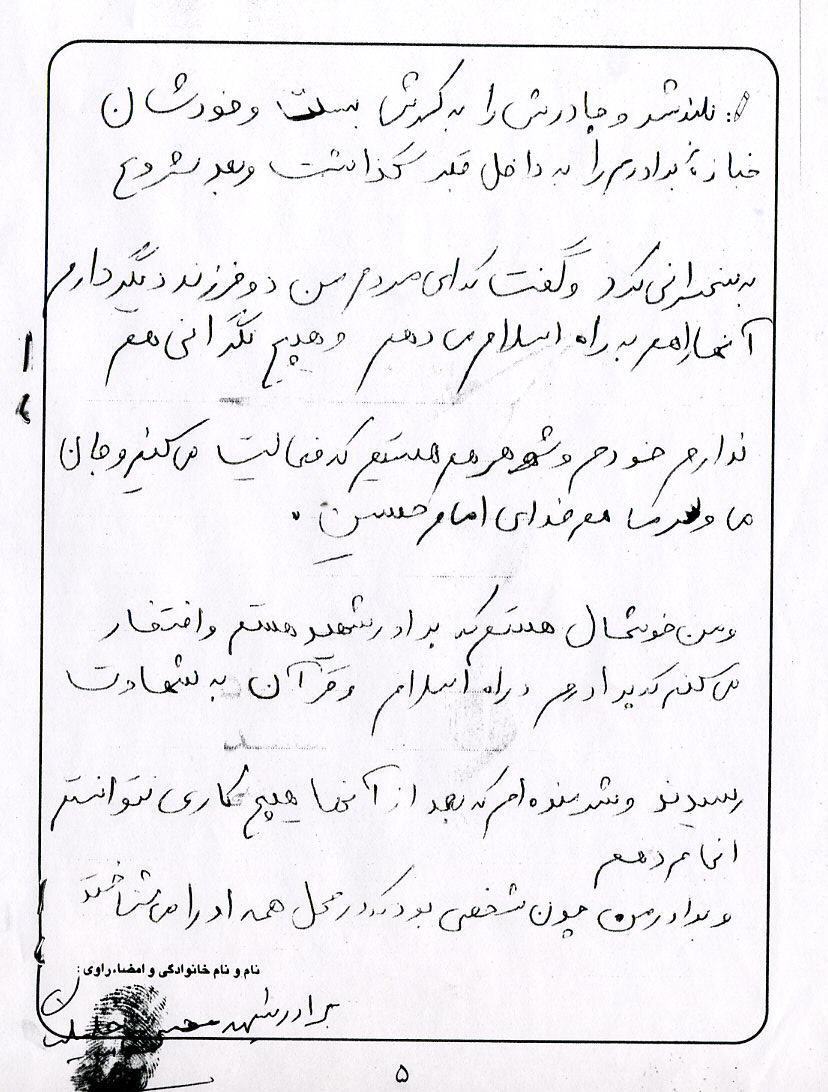 بلند شد و چادرش را به کمرش بست و خودشان
جنازهٔ برادرم را به داخل قبر گذاشت و بعد شروع
به سخنرانی کرد و گفت که ای مردم من دو فرزند دیگر دارم
آنها را هم به راه اسلام می دهم و هیچ نگرانی هم
ندارم خودم و شوهرم هم هستیم که فعالیت می کنیم و جان
ما و هم فدای امام حسین .
ومن خوشحال هستم که برادر شهید هستم و افتخار
می کنم که برادرم در راه اسلام و قرآن به شهادت
رسیدند و شرمنده ام که بعد از آنها هیچ کاری نتوانستم
انجام دهم
و برادر من چون شخصی بود که در محل همه او را می شناختند
نام و نام خانوادگی و امضاء راوی :
برادر شهید
۵